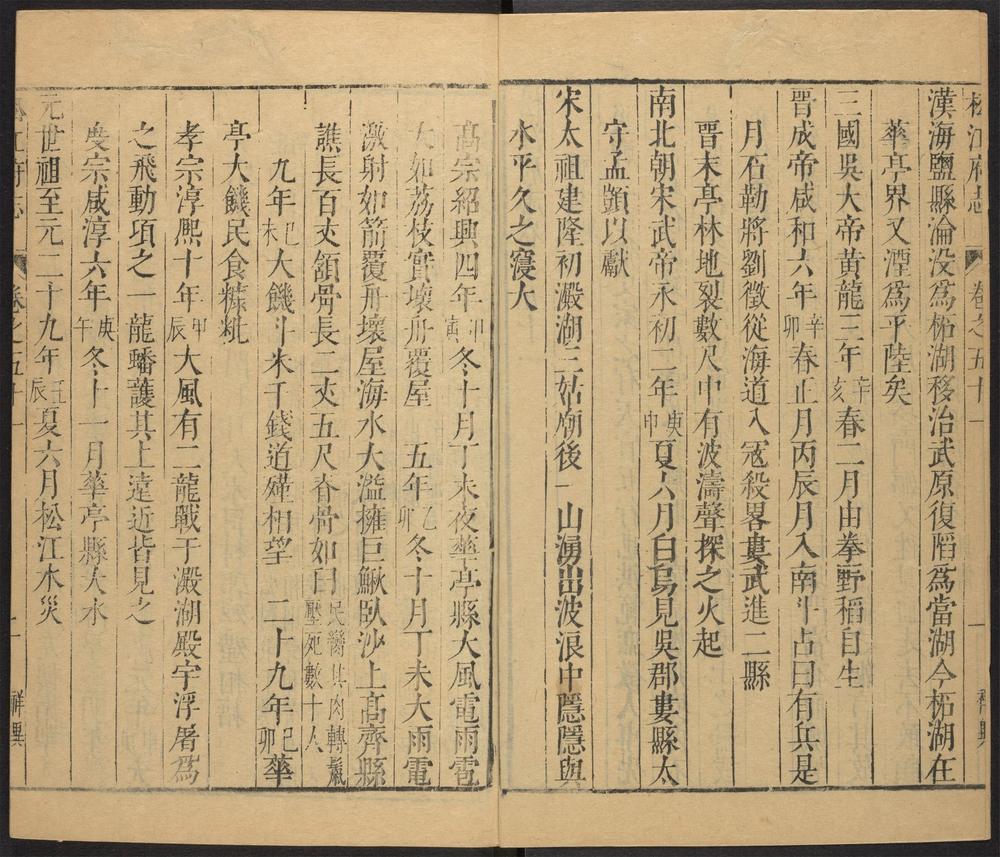 松江府志 卷之五十 一 祥異
漢海鹽縣淪没爲柘湖移治武原復陷爲當湖今柘湖在
華亭界又湮爲平陸矣
三國吳大帝黄龍三年辛亥春二月由拳野稻自生
晉成帝咸和六年辛卯春正月丙辰月入南斗占曰有兵是
月石勒將劉徵從海道入寇殺畧婁武進二縣
晉末亭林地裂數尺中有波濤聲探之火起
南北朝宋武帝永初二年庚申夏六月白烏見吳郡婁縣太
守孟顗以獻
宋太祖建隆初澱湖三姑廟後一山湧出波浪中隱隱與
水平久之寖大
高宗紹興四年甲寅冬十月丁未夜華亭縣大風電雨雹
大如荔枝實壞舟覆屋 五年乙卯冬十月丁未大雨電
激射如箭覆舟壞屋海水大溢擁巨鰍臥沙上高齊縣
譙長百丈額骨長二丈五尺脊骨如臼民臠其肉轉鬣壓死數十人
九年己未大饑斗米千錢道殣相望 二十九年己卯華
亭大饑民食糠粃
孝宗淳熙十年甲辰大風有二龍戰于澱湖殿宇浮屠爲
之飛動項之一龍蟠護其上遠近皆見之
度宗咸淳六年庚午冬十一月華亭縣大水
元世祖至元二十九年壬辰夏六月松江水災
松江府志 卷之五十 二 祥異